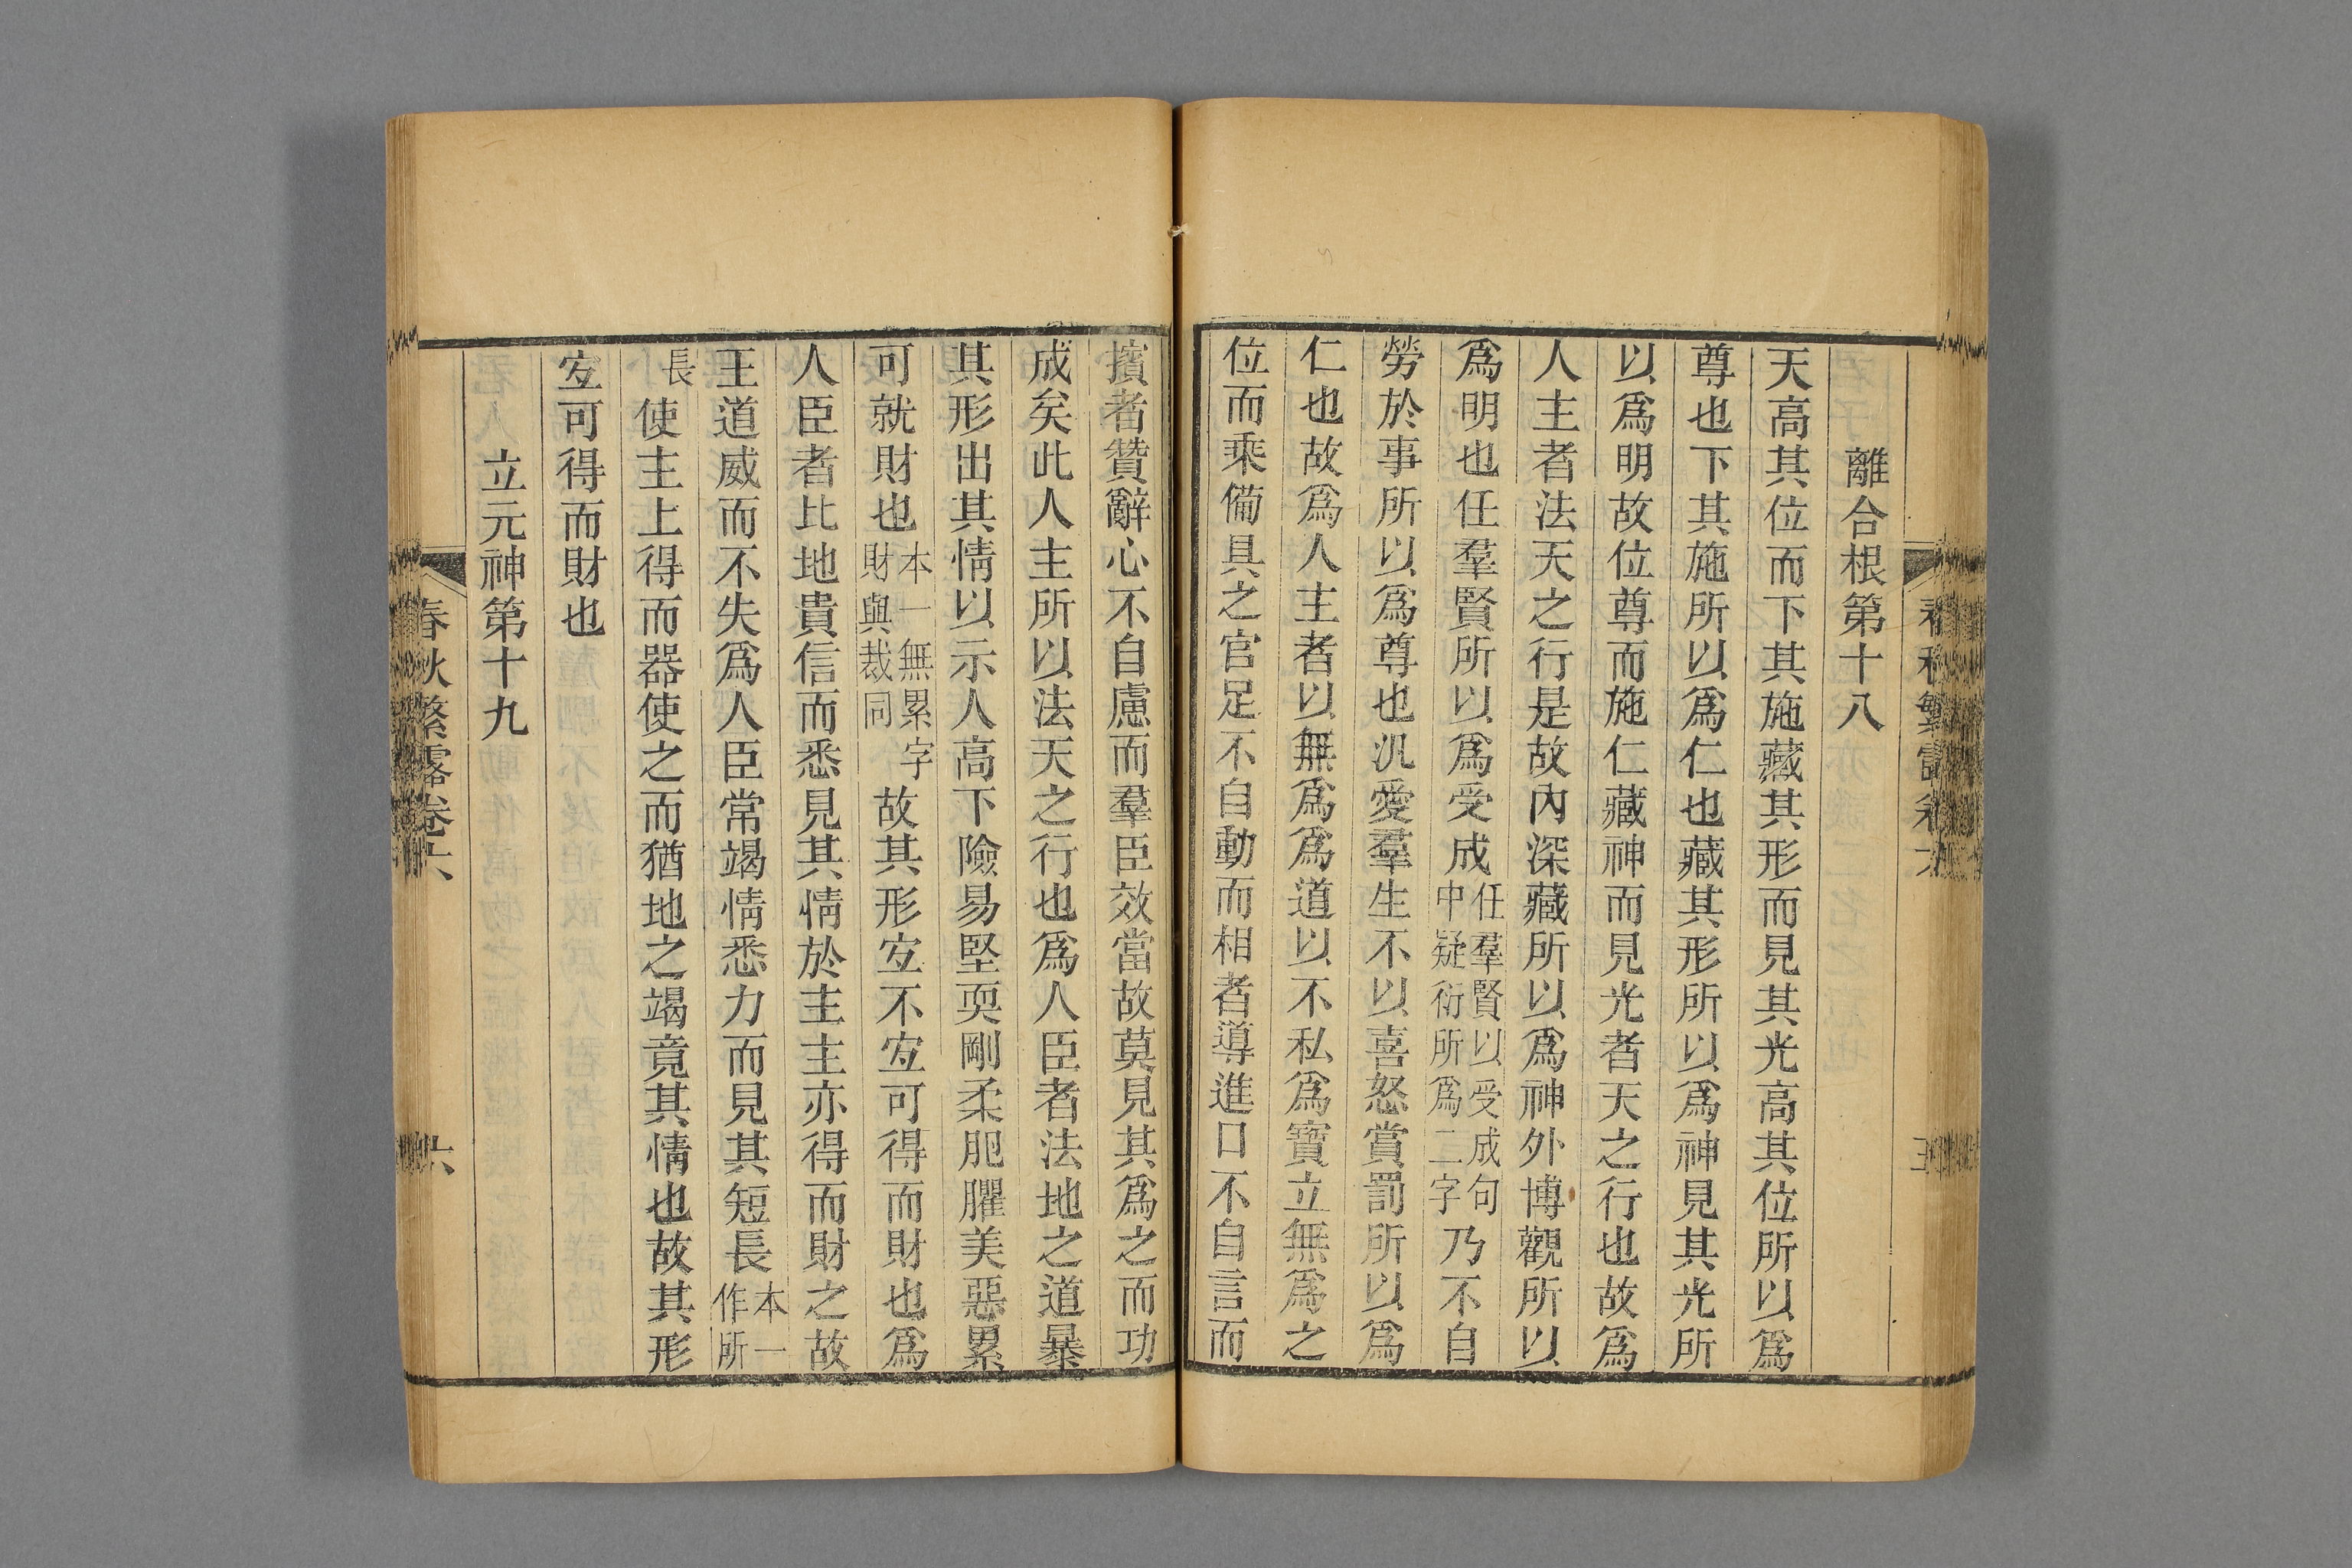 離合根第十八
天高其位而下其施藏其形而見其光高其位所以爲
尊也下其施所以爲仁也藏其形所以爲神見其光所
以爲明故位尊而施仁藏神而見光者天之行也故爲
人主者法天之行是故內深藏所以爲神外博觀所以
爲明也任羣賢所以爲受成任羣賢以受成句中疑衍所爲二字乃不自
勞於事所以爲尊也汎愛羣生不以喜怒賞罰所以爲
仁也故爲人主者以無爲爲道以不私爲寶立無爲之
位而乘備具之官足不自動而相者導進口不自言而
擯者贊辭心不自慮而羣臣效當故莫見其爲之而功
成矣此人主所以法天之行也爲人臣者法地之道暴
其形出其情以示人高下險易堅耎剛柔肥臞美惡累
可就財也本一無累字財與裁同故其形宐不宐可得而財也爲
人臣者比地貴信而悉見其情於主主亦得而財之故
王道威而不失爲人臣常竭情悉力而見其短長本一作所
長使主上得而器使之而猶地之竭竟其情也故其形
宐可得而財也
立元神第十九
春秋繁露卷六
六